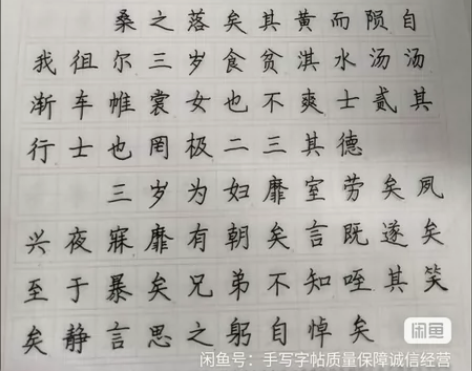 桑之落矣其黄而陨自
我徂尔三岁食贫淇水汤汤
渐车帷裳女也不爽士贰其
行士也罔极二三其德
三岁为妇靡室劳矣夙
兴夜寐靡有朝矣言既遂矣
至于暴矣兄弟不知咥其笑
矣静言思之躬自悼矣
闲鱼
闲鱼号：手写字帖质量保障诚信经营